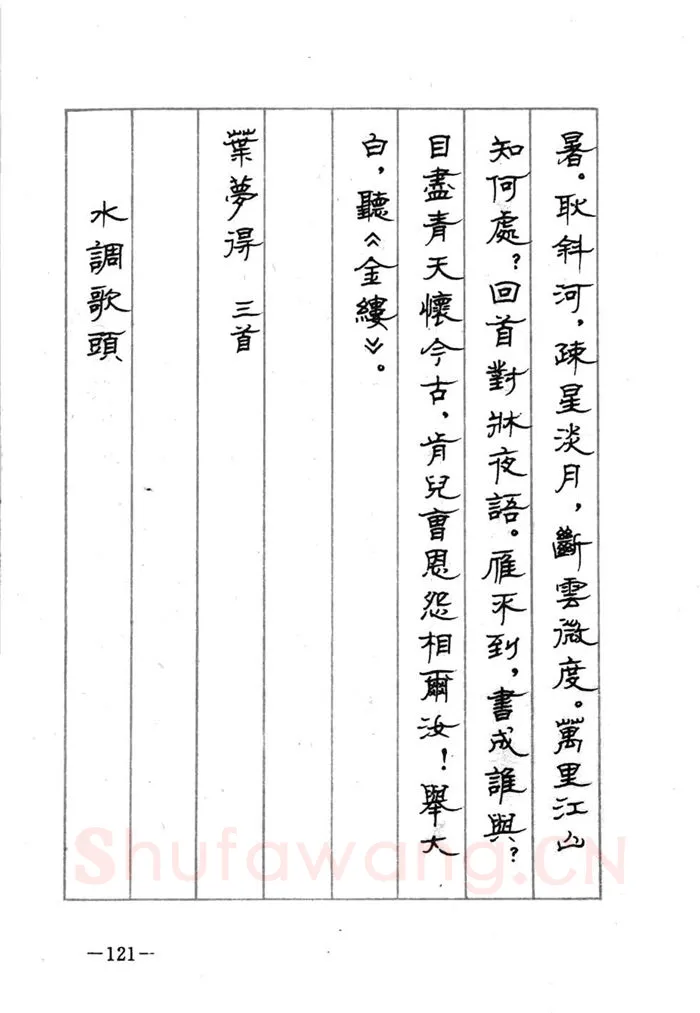 暑。耿斜河，疎星淡月，斷雲微度。萬里江山
知何處？回首對牀夜語。雁不到，書成誰與？
目盡青天懷今古，肯兒曹恩怨相爾汝！舉大
白，聽《金縷》。
葉夢得　三首
水調歌頭
—121—
Shufawang.CN